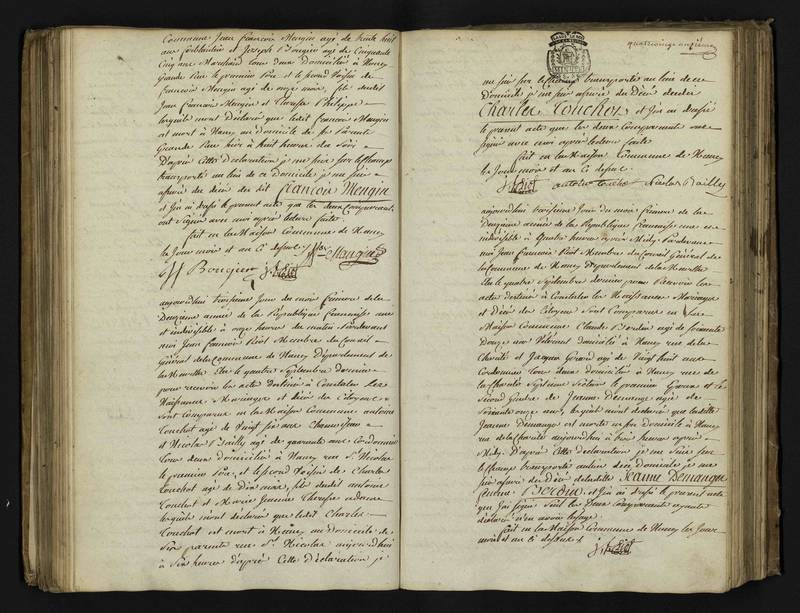 Commune Jean françois Mengin agé de trente huit
ans et Joseph Bouquin agé de Cinquante
Cinq ans Marchand tous deux Domiciliés à Nancy
Grande Rue le premier Père et le second Voisin de
françois Mengin agé de onze mois, fils dudit
Jean françois Mengin et Therese Philippe
lesquels mont déclaré que ledit françois Mengin
est mort à Nancy au domicile de ses Parents
Grande Rue hier à huit heures du Soir
D'après Cette Déclaration je me suis sur le champ
transporté au lieu de ce Domicile je me suis
assuré du décès du dit françois Mengin
et j'en ai dressé le présent acte que les deux Comparants
ont Signé avec moi après lecture faite
fait en la Maison Commune de Nancy
le Jour mois et an Ci dessus
Mengin
Bouquin
aujourdhui treisième Jour du mois frimaire de la
Deuxième année de la République française une
et indivisible à onze heures du matin Pardevant
moi Jean françois Membre du Conseil
Général de la Commune de Nancy Département de
la Meurthe Elu le quatre Septembre dernier
pour recevoir les actes destinés à Constater les
Naissances Mariages et décès des Citoyens
sont comparus en la Maison Commune antoine
Conchot agé de Vingt six ans
et Nicolas Bailly agé de quarante ans Cordonnier
tous deux domiciliés à Nancy rue St Nicolas
le premier Père, et le second Voisin de Charles
Conchot agé de Dix mois, fils dudit antoine
Conchot et Marie Jeanne Therese
lesquels mont déclaré que ledit Charles
Conchot est mort à Nancy au domicile de
Ses parents rue St. Nicolas aujourdhui
à Six heures d'après Cette Déclaration je
quatrevingt onzième
me suis sur le champ transporté au lieu de ce
Domicile je me suis assuré du Décès dudit
Charles Conchot, et j'en ai dressé
le présent acte que les deux Comparants ont
signé avec moi après lecture faite
fait en la Maison Commune de Nancy
le Jour mois et an Ci dessus
Nicolas Bailly
aujourdhui treisième Jour du mois frimaire de la
Deuxième année de la République française une et
indivisible à Quatre heures après Midy Pardevant
moi Jean françois Membre du Conseil Général de
la Commune de Nancy Département de la Meurthe
Elu le quatre Septembre dernier pour Recevoir les
actes destinés à Constater les Naissances Mariages
et Décès des Citoyens Sont Comparus en la
Maison Commune Claude agé de soixante
Douze ans Vétéran domicilié à Nancy rue de la
Charité et Jacques Girard agé de Vingt huit ans
Cordonnier tous deux domiciliés à Nancy rue de
la Charité Septième Section le premier et le
second Gendre de Jeanne Demange agée de
soixante onze ans, lesquels mont déclaré que ladite
Jeanne Demange est morte en son Domicile à Nancy
rue de la Charité aujourdhui à trois heures après
Midy. D'après Cette Déclaration je me suis sur
le Champ transporté au lieu de ce Domicile je me
suis assuré du Décès de ladite Jeanne Demange
femme et j'en ai dressé le présent acte
que j'ai signé Seul les Deux Comparants ayant
déclaré n'en avoir l'usage
fait en la Maison Commune de Nancy les Jour
mois et an Ci dessus